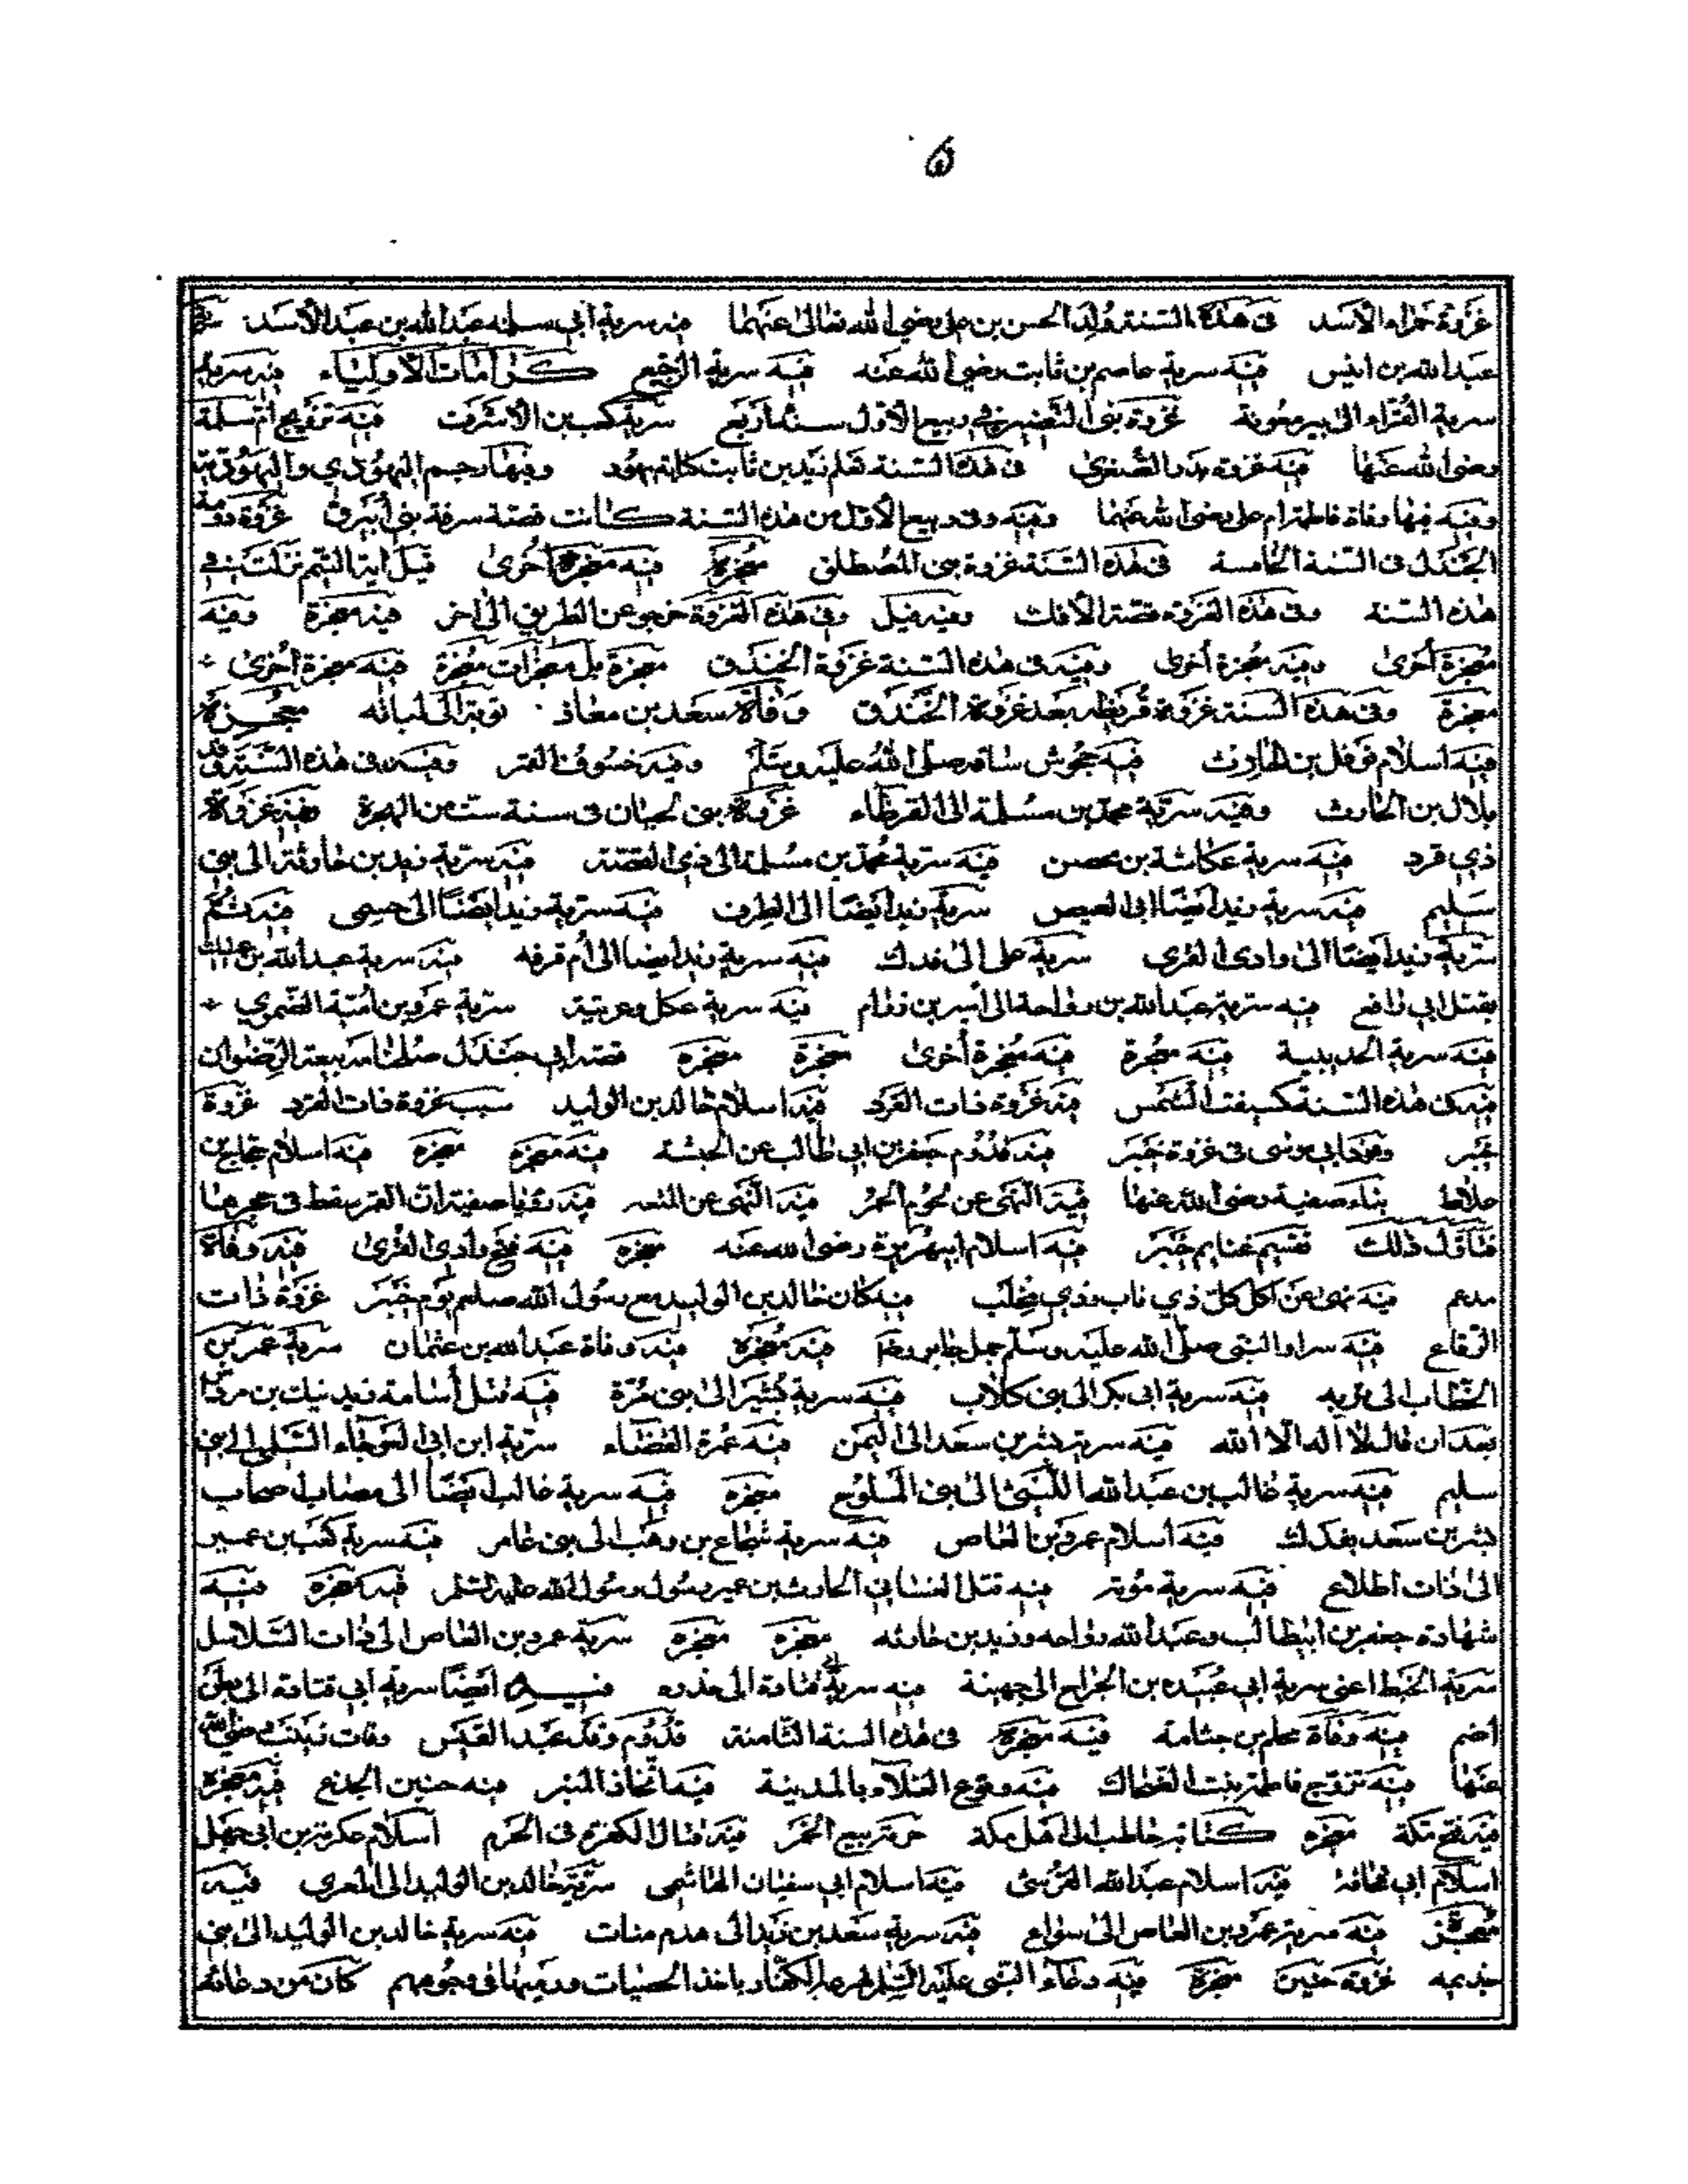 ۵
غزوة حمراء الاسد في هذه السنة ولد الحسن بن علي رضي الله تعالى عنهما فيه سرية ابي سلمة عبد الله بن عبد الأسد
عبد الله بن انيس فيه سرية عاصم بن ثابت رضي الله عنه فيه سرية الرجيع كرامات الأولياء فيه سرية
سرية القراء الى بير معونة غزوة بني النضير في ربيع الأول سنة اربع سرية كعب بن الاشرف فيه تزويج ام سلمة
رضي الله عنها فيه غزوة بدر الصغرى في هذه السنة تعلم زيد بن ثابت كتابة يهود وفيها رجم اليهودي واليهودية
وفيه فيها وفاة فاطمة ام علي رضي الله عنهما وفيه وفي ربيع الأول من هذه السنة كانت قصة سرقة بني أبيرق غزوة دومة
الجندل في السنة الخامسة في هذه السنة غزوة بني المصطلق معجزة فيه معجزة اخرى قيل اية التيمم نزلت في
هذه السنة وفي هذه الغزوة قصة الافك وفيه قيل وفي هذه الغزوة خرجوا عن الطريق الى اخر فيه معجزة وفيه
معجزة أخرى وفيه معجزة أخرى وفيه في هذه السنة غزوة الخندق معجزة بل معجزات معجزة فيه معجزة اخرى
معجزة وفي هذه السنة غزوة قريظة بعد غزوة الخندق وفاة سعد بن معاذ توبة ابي لبابة معجزة
فيه اسلام نوفل بن الحارث فيه جحوش ساقه صلى الله عليه وسلم وفيه خسوف القمر وفيه في هذه السنة وفد
بلال بن الحارث وفيه سرية محمد بن مسلمة الى القرطاء غزوة بني لحيان في سنة ست من الهجرة فيه غزوة
ذي قرد فيه سرية عكاشة بن محصن فيه سرية محمد بن مسلمة الى ذي القصة فيه سرية زيد بن حارثة الى بني
سليم فيه سرية زيد أيضا الى العيص سرية زيد أيضا الى الطرف فيه سرية زيد أيضا الى حسمى فيه ثم
سرية زيد أيضا الى وادي القرى سرية علي الى فدك فيه سرية زيد أيضا الى أم قرفه فيه سرية عبد الله بن عتيك
بقتل ابي رافع فيه سرية عبد الله بن رواحة الى أسير بن رزام فيه سرية عكل وعرينة سرية عمرو بن أمية الضمري
فيه سرية الحديبية فيه معجزة فيه معجزة أخرى معجزة معجزه قصة ابي جندل بيعة الرضوان
فيه في هذه السنة كسفت الشمس فيه غزوة ذات القرد فيه اسلام خالد بن الوليد سبب غزوة ذات القرد غزوة
خيبر وفد ابي موسى في غزوة خيبر فيه قدوم جعفر بن ابي طالب عن الحبشة فيه معجزة معجزه فيه اسلام حجاج بن
علاط بناء صفية رضي الله عنها فيه النهي عن لحوم الحمر فيه النهي عن المتعه فيه رؤيا صفية ان القمر سقط في حجرها
فتأول ذلك تقسيم غنايم خيبر فيه اسلام ابي هريرة رضي الله عنه معجزه فيه فتح وادي القرى فيه وفاة
مدعم فيه نهي عن اكل كل ذي ناب وذي مخلب فيه كان خالد بن الوليد مع رسول الله صلعم يوم خيبر غزوة ذات
الرقاع فيه شراء النبي صلى الله عليه وسلم جمل جابر فيه معجزة فيه وفاة عبد الله بن عثمان سرية عمر بن
الخطاب الى تربه فيه سرية ابي بكر الى بني كلاب فيه سرية بشير الى بني مرة فيه قتل أسامة نهيك بن مرداس
بعد ان قال لا اله الا الله فيه سرية بشر بن سعد الى اليمن فيه عمرة القضاء سرية ابن ابي العوجاء السلمي الى بني
سليم فيه سرية غالب بن عبد الله الليثي الى بني الملوح معجزه فيه سرية غالب أيضا الى مصاب اصحاب
بشر بن سعد بفدك فيه أسلام عمرو بن العاص فيه سرية شجاع بن وهب الى بني عامر فيه سرية كعب بن عمير
الى ذات اطلاع فيه سرية موته فيه قتل الغساني الحارث بن عمير رسول رسول الله عليه السلم فيه معجزه فيه
شهادة جعفر بن ابيطالب وعبد الله رواحه وزيد بن حارثه معجزه معجزه سرية عمرو بن العاص الى ذات السلاسل
سرية الخبط اعني سرية ابي عبيده بن الجراح الى جهينة فيه سرية قتادة الى فيه أيضا سرية ابي قتادة الى بطن
أضم فيه وفاة محلم بن جثامة فيه معجزة في هذه السنة الثامنة قدوم وفد عبد القيس وفات زينب رضي الله
عنها فيه تزوج فاطمة بنت الضحاك فيه وقوع الغلاء بالمدينة فيه اتخاذ المنبر فيه حنين الجذع فيه معجزه
فيه فتح مكة معجزه كتابة حاطب الى اهل مكة حرمة بيع الخمر فيه قتال الكفرة في الحرم اسلام عكرمة بن ابي جهل
اسلام ابي قحافة فيه اسلام عبد الله القرشي فيه اسلام ابي سفيان الهاشمي سرية خالد بن الوليد الى العزى فيه
معجز فيه سرية عمرو بن العاص الى سواع فيه سرية سعد بن زيد الى هدم منات فيه سرية خالد بن الوليد الى بني
جذيمه غزوة حنين معجزة فيه دعاء النبي عليه السلم على الكفار باخذ الحصيات ورميها في وجوههم كان من دعائه